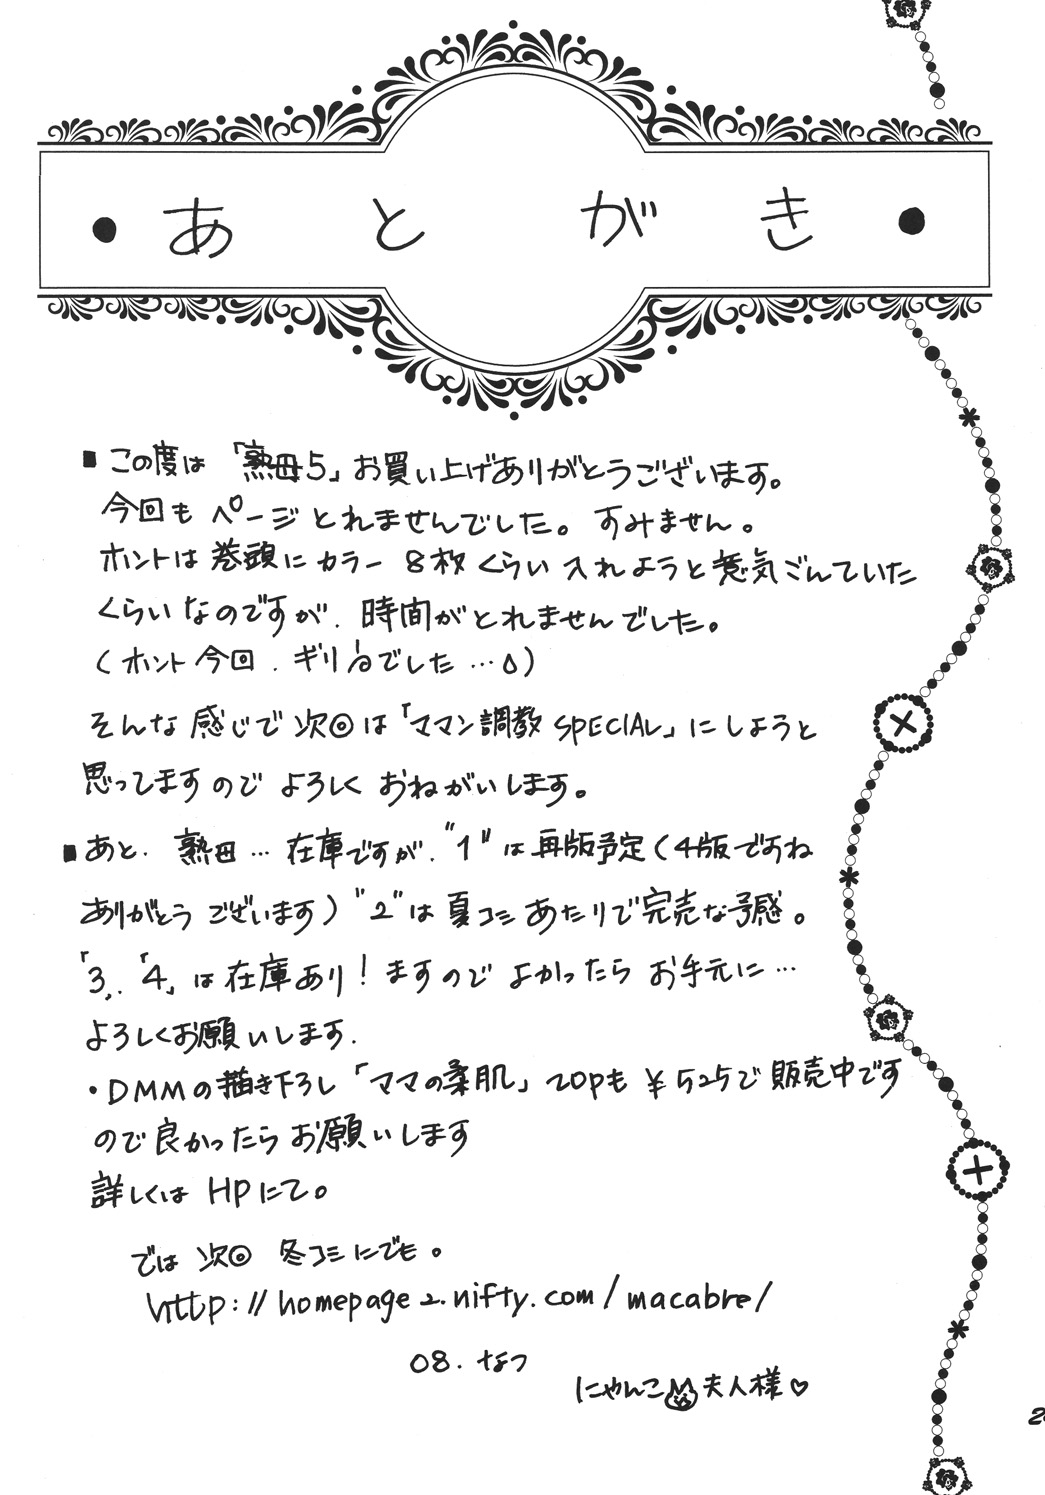 ・あとがき・
■この度は「熟母5」お買い上げありがとうございます。
今回もページとれませんでした。すみません。
ホントは巻頭にカラー8枚くらい入れようと意気ごんていた
くらいなのですが、時間がとれませんでした。
(ホント今回、ギリ
でした…)
そんな感じで次回は「ママン調教SPECIAL」にしようと
思ってますのでよろしくおねがいします。
■あと、熟母…在庫ですが、"1"は再版予定(4版ですね
ありがとうございます)"2"は夏コミあたりで完売な予感。
「3」、「4」は在庫あり!ますのでよかったらお手元に…
よろしくお願いします.
・DMMの描き下ろし「ママの柔肌」20pも¥525で販売中です
ので良かったらお願いします
詳しくはHPにて。
では次回冬コミにでも。
http://homepage2.nifty.com/macabre/
08.なつ
にゃんこ夫人様♡